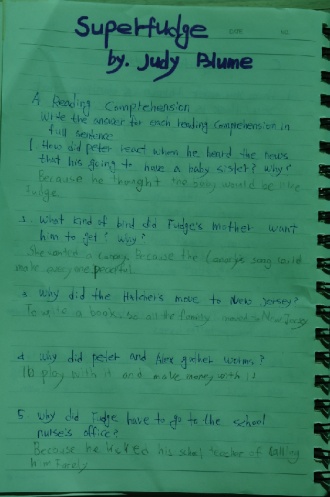 Superfudge
by. Judy Blume
A. Reading Comprehension
Write the answer for each reading comprehension in
full sentence
1. How did peter react when he heard the news
that his going to have a baby sister? Why?
Because he thought the baby would be like
Fudge
What kind of bird did Fudge's mother want
him to get? Why?
She wanted a canary, Because the Canary's song could
make everyone peaceful
Why did the Hatchers move to New Jersey?
To write a book, so all the family moved to New Jersey
4. Why did peter and Alex gather worms?
To play with it and make money with it
5. Why did Fudge have to go to the school
nurse's office?
Because he kicked his school teacher of calling
him